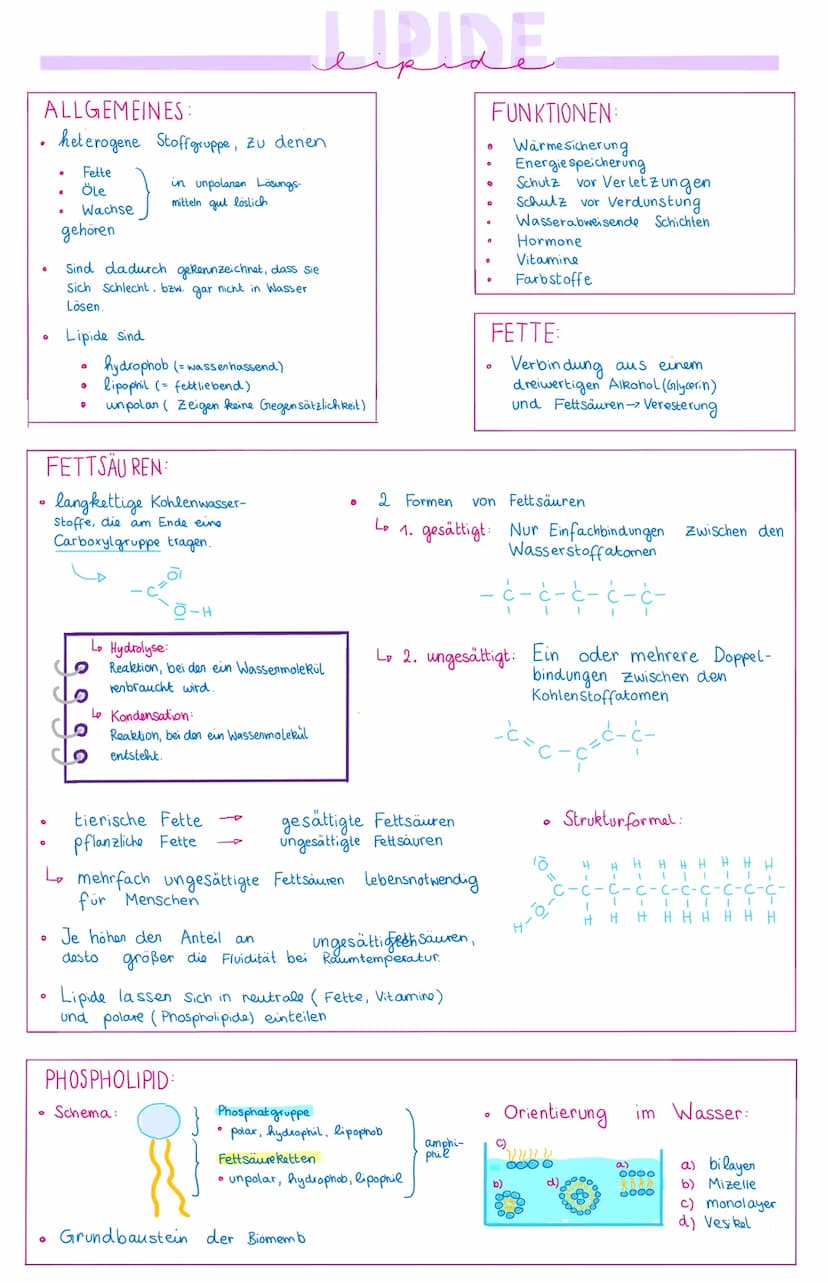 LIPIDE
lipide
ALLGEMEINES:
• heterogene Stoffgruppe, zu denen
• Fette
• Öle
• Wachse
in unpolaren Lösungs-
mitteln gut löslich
gehören
• Sind dadurch gekennzeichnet, dass sie
sich schlecht. bzw. gar nicht in Wasser
Lösen.
• Lipide sind
• hydrophob (= wasserhassend)
• lipophil (= fettliebend)
• unpolar ( Zeigen keine Gegensätzlichkeit)
FUNKTIONEN:
• Wärmesicherung
• Energiespeicherung
• Schutz vor Verletzungen
• Schutz vor Verdunstung
• Wasserabweisende Schichten
• Hormone
• Vitamine
• Farbstoffe
FETTE:
• Verbindung aus einem
dreiwertigen Alkohol (Glycerin)
und Fettsäuren → Veresterung
FETTSÄUREN:
• langkettige Kohlenwasser-
stoffe, die am Ende eine
Carboxylgruppe tragen.
O
- C
O - H
↳ Hydrolyse:
Reaktion, bei der ein Wassermolekül
verbraucht wird.
↳ Kondensation:
Reaktion, bei der ein Wassermolekül
entsteht.
• 2 Formen von Fettsäuren
↳ 1. gesättigt: Nur Einfachbindungen zwischen den
Wasserstoffatomen
- C - C - C - C - C -
↳ 2. ungesättigt: Ein oder mehrere Doppel-
bindungen zwischen den
Kohlenstoffatomen
- C = C - C = C - C -
• tierische Fette → gesättigte Fettsäuren
• pflanzliche Fette → ungesättigte Fettsäuren
↳ mehrfach ungesättigte Fettsäuren lebensnotwendig
für Menschen
• Je höher der Anteil an ungesättigten Fettsäuren,
desto größer die Fluidität bei Raumtemperatur.
• Lipide lassen sich in neutrale ( Fette, Vitamine)
und polare ( Phospholipide) einteilen
• Strukturformel:
O H H H H H H H H H
C - C - C - C - C - C - C - C - C - C -
O
H H H H H H H H H H
PHOSPHOLIPID:
• Schema:
Phosphatgruppe
• polar, hydrophil, lipophob
Fettsäureketten
• unpolar, hydrophob, lipophil
amphi-
phil
• Grundbaustein der Biomemb
• Orientierung im Wasser:
c)
a)
b)
d)
a) bilayer
b) Mizelle
c) monolayer
d) Vesikel